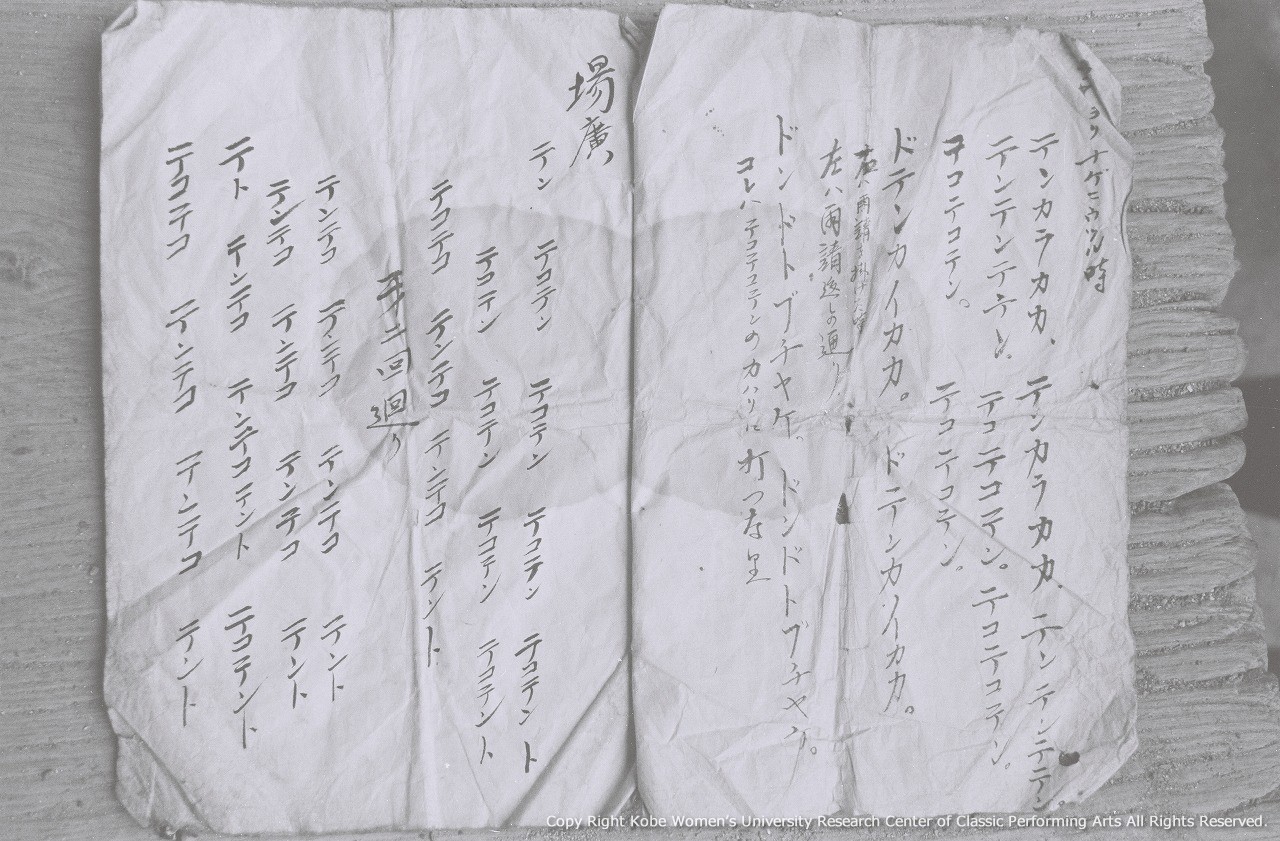 ナゲニウツ時
テンカラカカ、テンカラカカ、テンテンテテン
テンテンテテン。テコテコテン。テコテコテン。
テコテコテン。テコテコテン。
ドテンカイカカ。ドテンカイカカ。
左ハ雨請 通り
ドンドトブチヤケ。ドンドトブチヤケ。
コレハテコテコテンのカハリに打つな里
場廣
テン テコテン テコテン テコテン テコテント
テコテン テコテン テコテン テコテント
テコテコ テンテコ テンテコ テント
二回廻り
テンテコ テンテコ テンテコ テント
テンテコ テンテコ テンテコ テント
テト テンテコ テンテコテント テコテント
テコテコ テンテコ テンテコ テント
Copy Right Kobe Women's University Research Center of Classic Performing Arts All Rights Reserved.